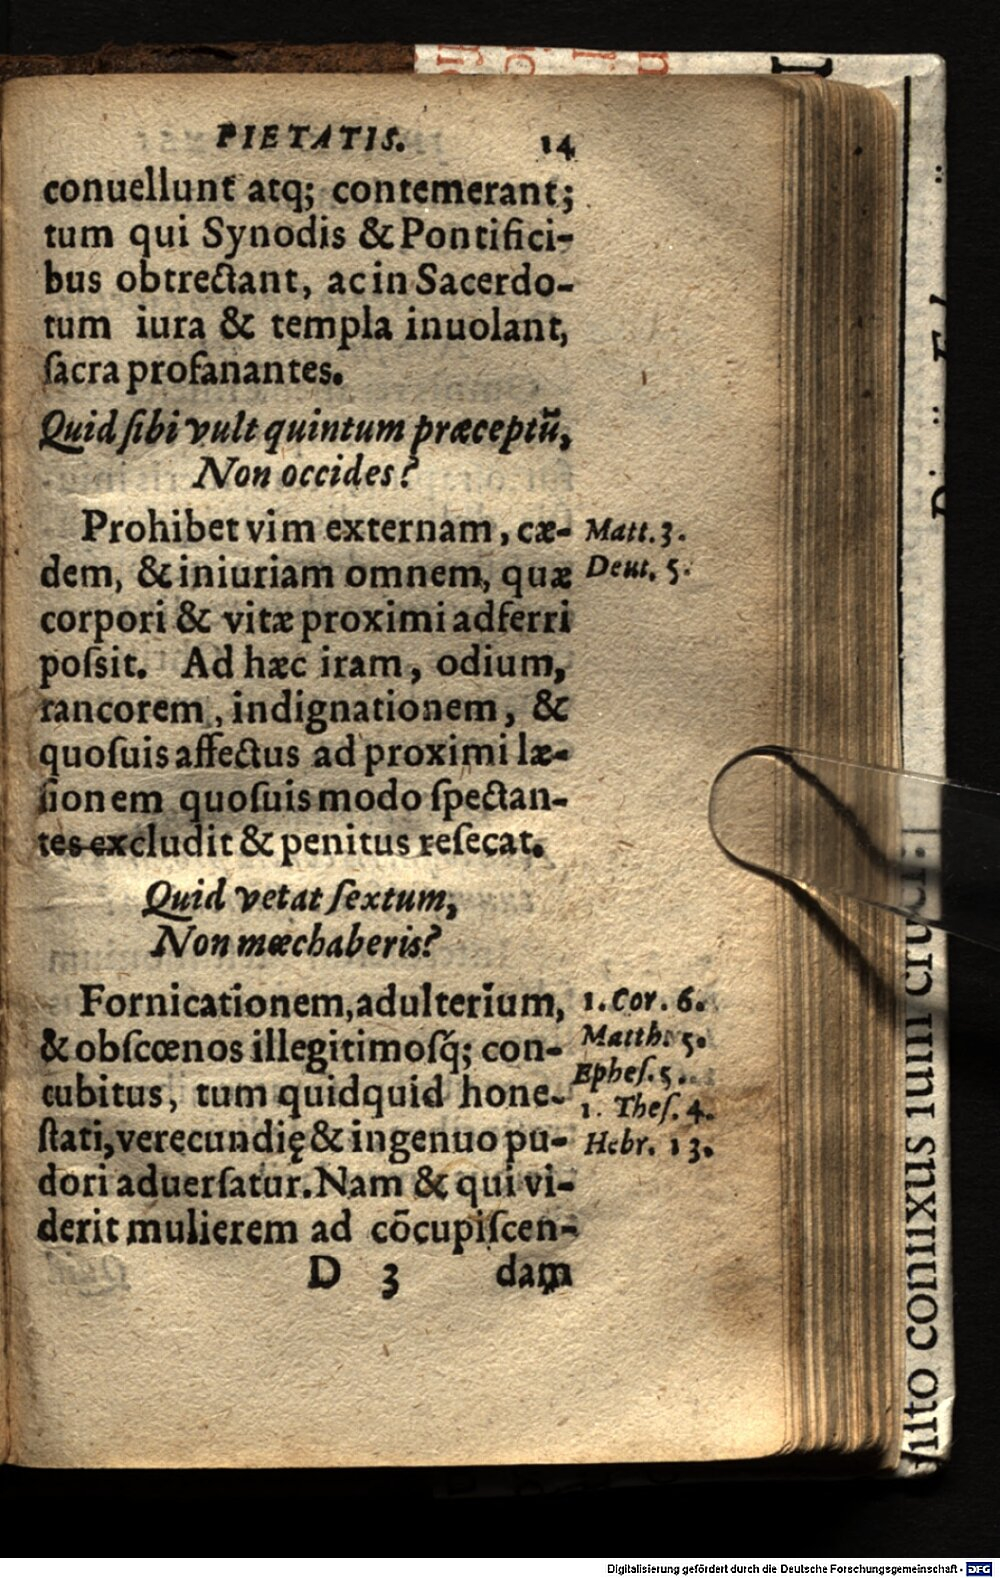 PIETATIS. 14
conuellunt atq; contemerant;
tum qui Synodis & Pontifici-
bus obtrectant, ac in Sacerdo-
tum iura & templa inuolant,
ſacra profanantes.
Quid ſibi vult quintum præceptū,
Non occides?
Prohibet vim externam, cæ-
dem, & iniuriam omnem, quæ
corpori & vitæ proximi adferri
poſsit. Ad hæc iram, odium,
rancorem, indignationem, &
quoſuis affectus ad proximi læ-
ſionem quoſuis modo ſpectan-
tes excludit & penitus reſecat.
Matt. 3.
Deut. 5.
Quid vetat ſextum,
Non mœchaberis?
Fornicationem, adulterium,
& obſcœnos illegitimoſq́; con-
cubitus, tum quidquid hone-
ſtati, verecundię & ingenuo pu-
dori aduerſatur. Nam & qui vi-
derit mulierem ad cōcupiſcen-
1. Cor. 6.
Matth. 5.
Epheſ. 5.
1. Theſ. 4.
Hebr. 13.
D 3 dam
conuixus ium cru
Digitalisierung gefördert durch die Deutsche Forschungsgemeinschaft - DFG